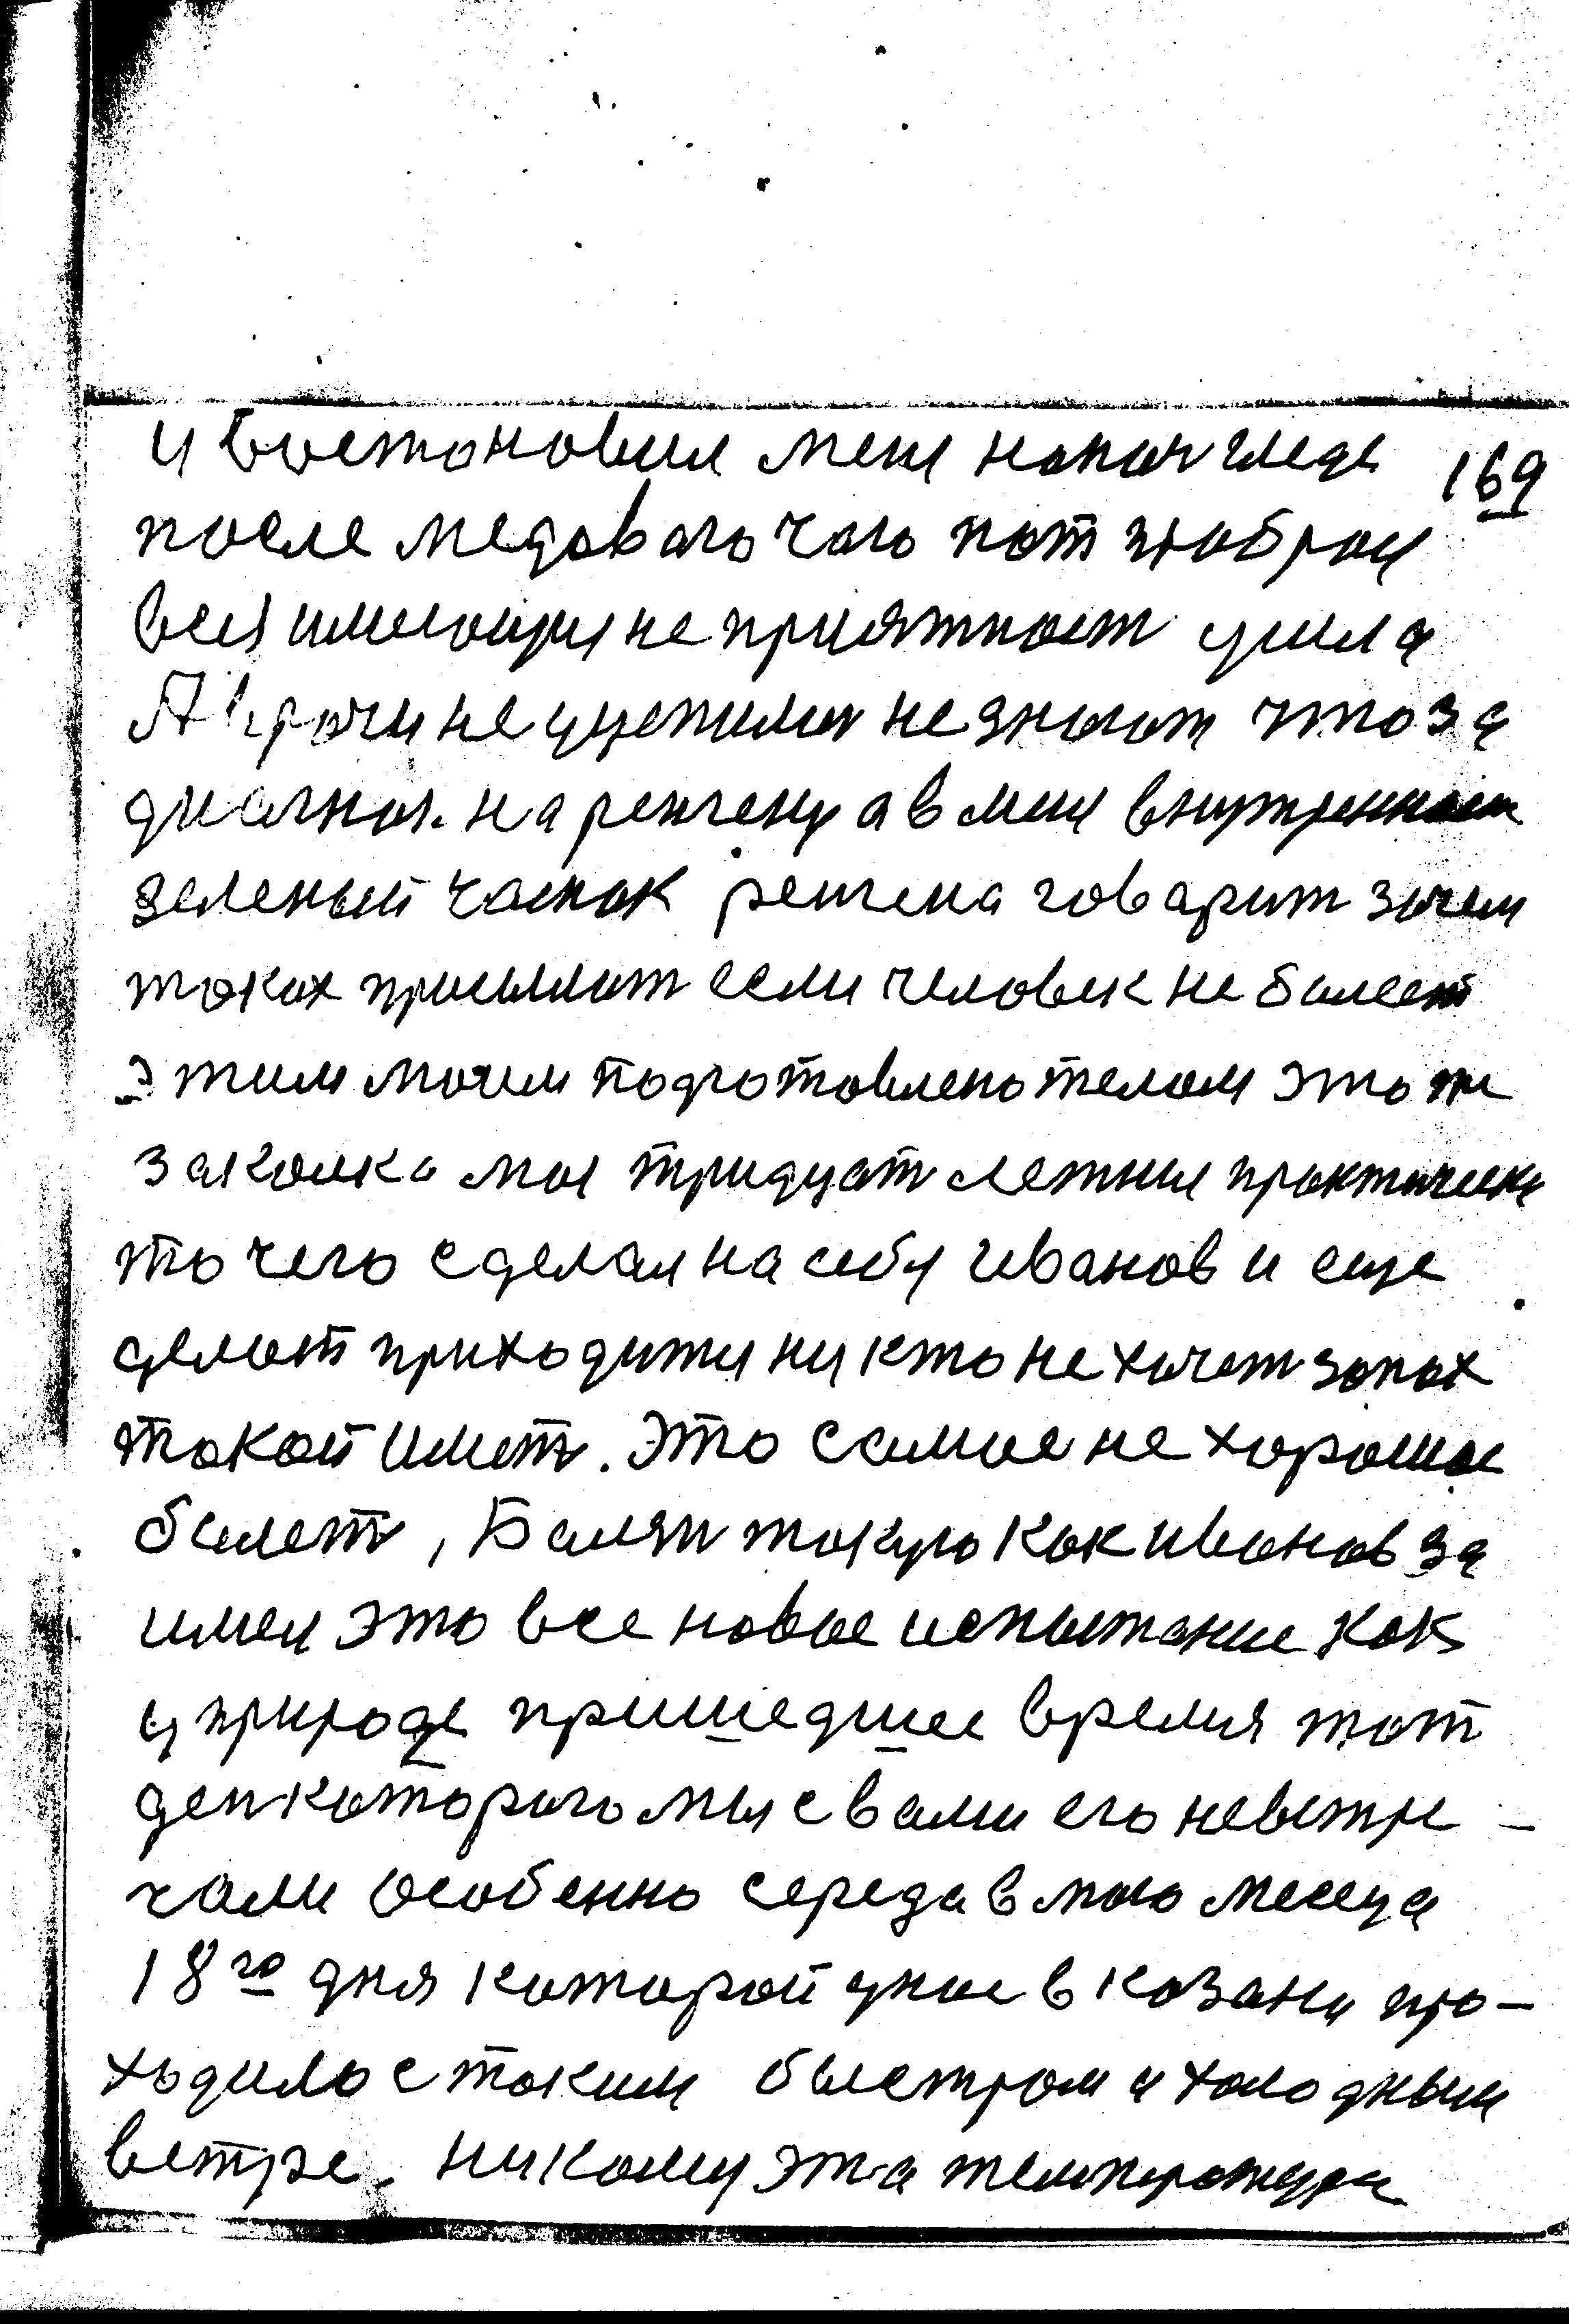 и востоновил мене
169
после медоваго чаю пот зтобрал
вся имеющия не приятност ушла
А врачи не уцепилис не знают что за
диагноз. на ренгену а в мине внутренност
зеленый часнок ренгена говарит зачем
таких присылают если человек не балеет
Этим моим подготовлено телом это ж
закалка моя тридцат летния практическа
то чего сделал на себя иванов и еще
делат приходится ни кто не хочет запах
такой имет. Это самое не хорошае
балет, Балязн такую как иванов за
имел это все новае испытание как
у природе пришедшее время тот
ден котораго мы с вами его невстре-
чали особенно середа в маю месеца
18го дня которой днае в казани про-
ходило с таким быстрам и холодным
ветре. никому эта температура